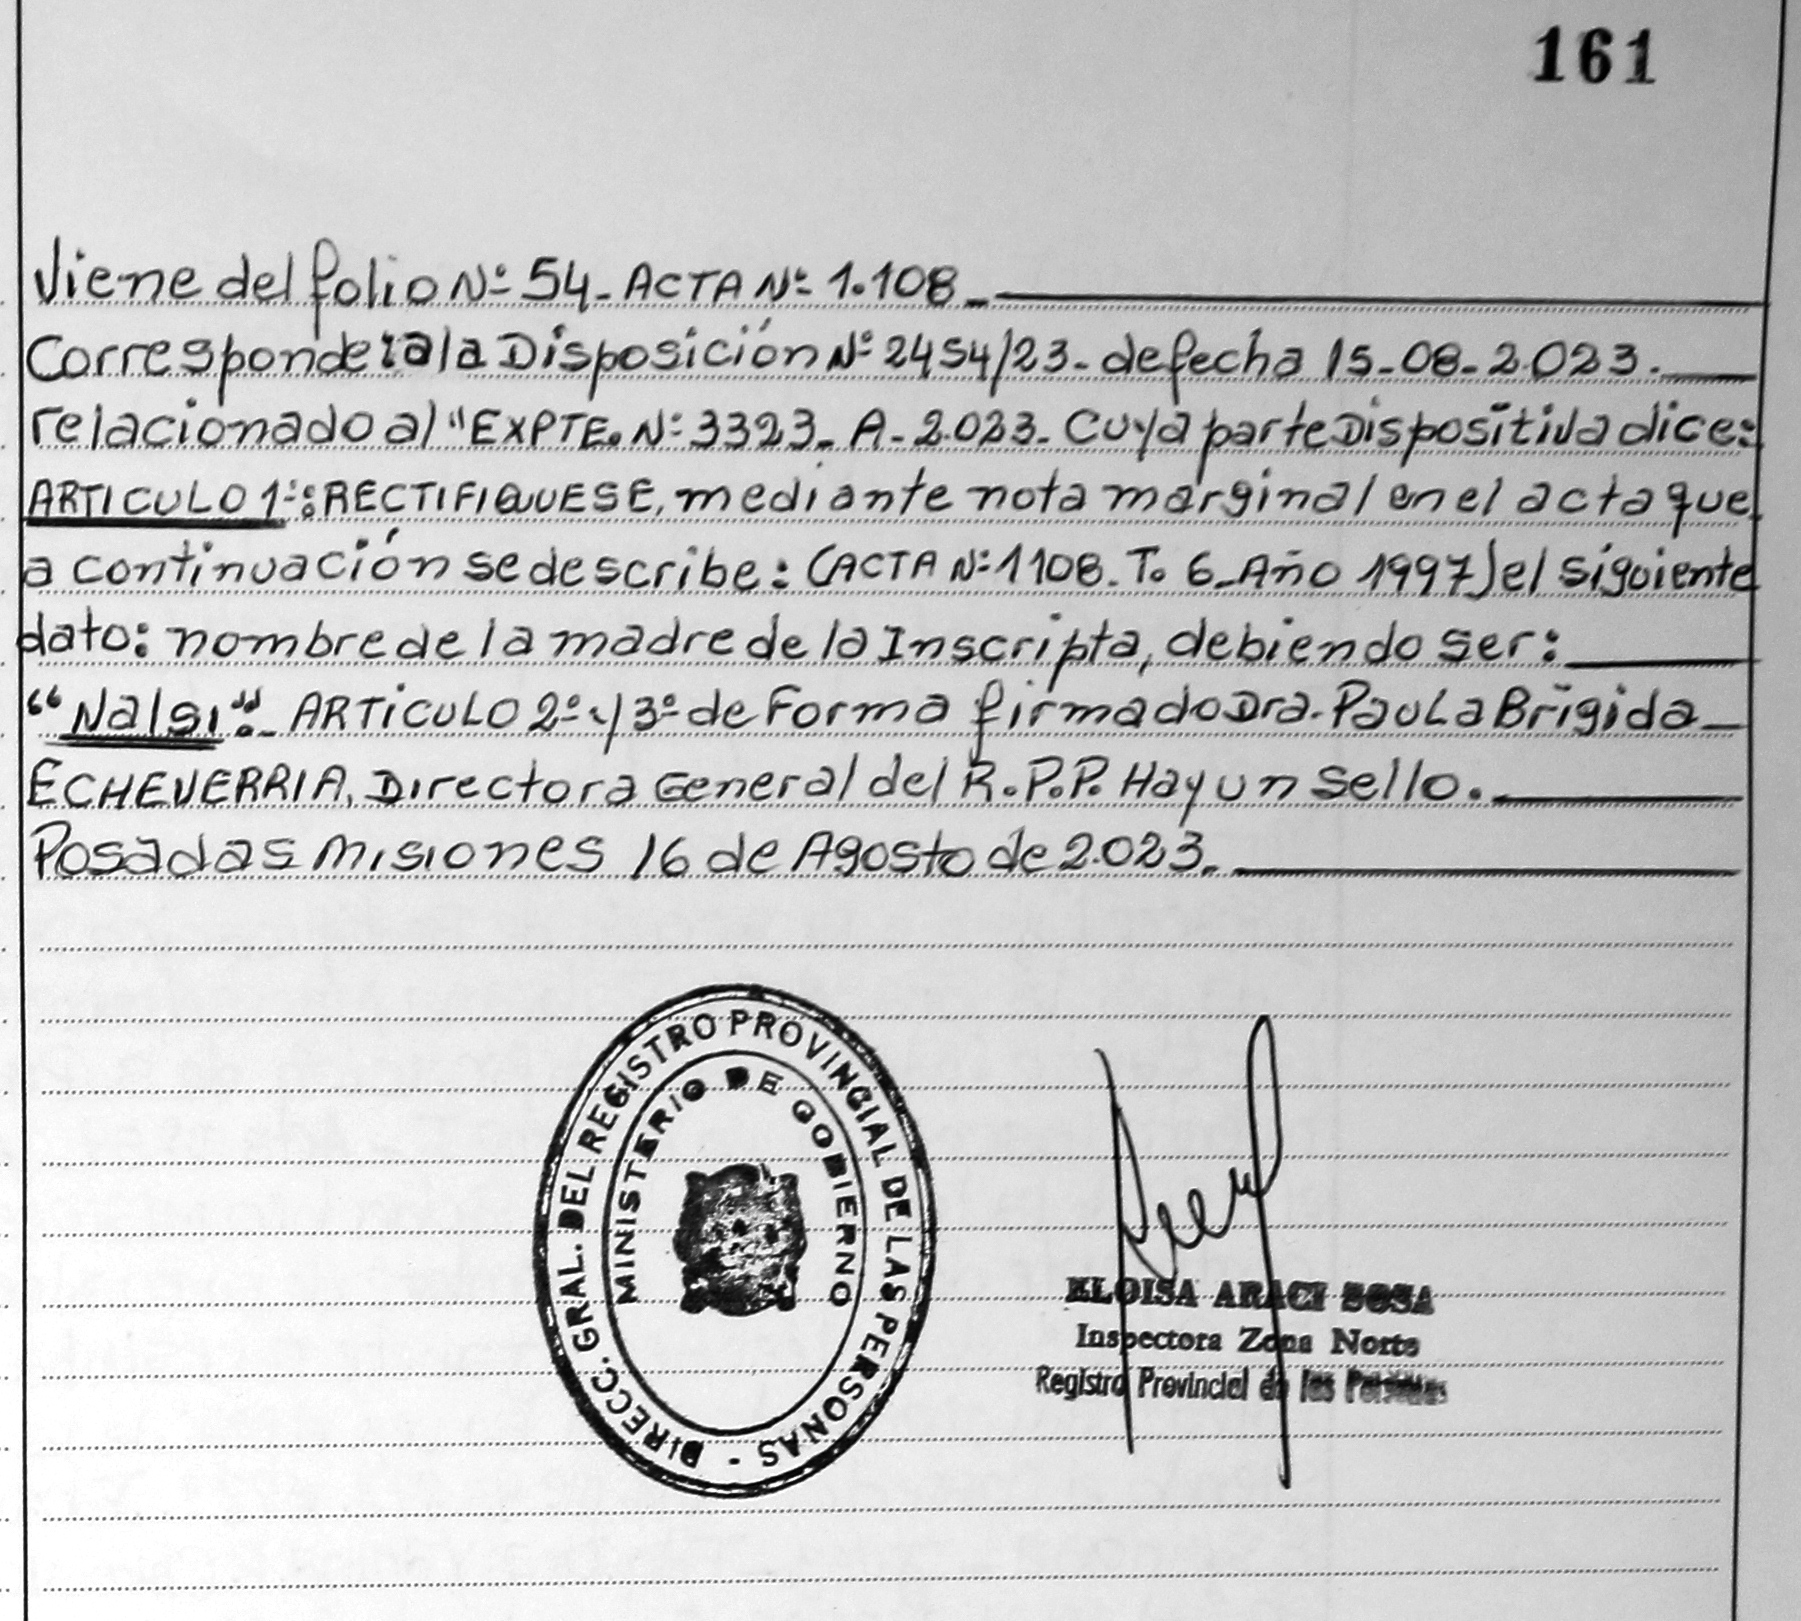 161
Viene del folio Nº 54_ ACTA Nº 1.108_
Corresponde a la Disposición Nº 2454/23_ de fecha 15_08_2.023._
relacionado al "EXPTE. Nº 3323_ A_ 2.023_ Cuya parte Dispositiva dice:
ARTICULO 1º: RECTIFIQUESE, mediante nota marginal en el acta que
a continuación se describe: (ACTA Nº 1108_ T. 6_ Año 1997) el siguiente
dato: nombre de la madre de la Inscripta, debiendo ser:
"Nalsi"._ ARTICULO 2º y 3º de Forma firmado Dra. Paula Brigida_
ECHEVERRIA, Directora General del R.P.P. Hay un sello.
Posadas Misiones 16 de Agosto de 2.023.
DIRECC. GRAL. DEL REGISTRO PROVINCIAL DE LAS PERSONAS -
MINISTERIO DE GOBIERNO
ELOISA ARACI SOSA
Inspectora Zona Norte
Registro Provincial de las Personas